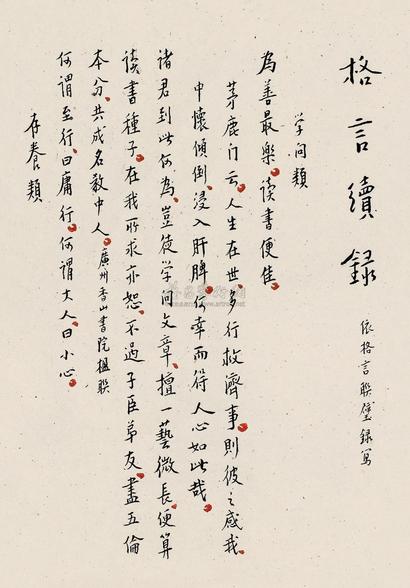 格言續録
依格言聯璧録寫
学问類
為善最樂，读書便佳。
茅鹿门云，人生在世，多行救濟事，則彼之感我，
中懷傾倒，浸入肝脾。何幸而得人心如此哉。
诸君到此何為，豈徒学问文章，擅一藝微長，便算
读書種子。在我所求亦恕，不過子臣弟友，盡五倫
本分，共成名教中人。廣州香山書院楹聯
何谓至行，曰庸行。何谓大人，曰小心。
存養類